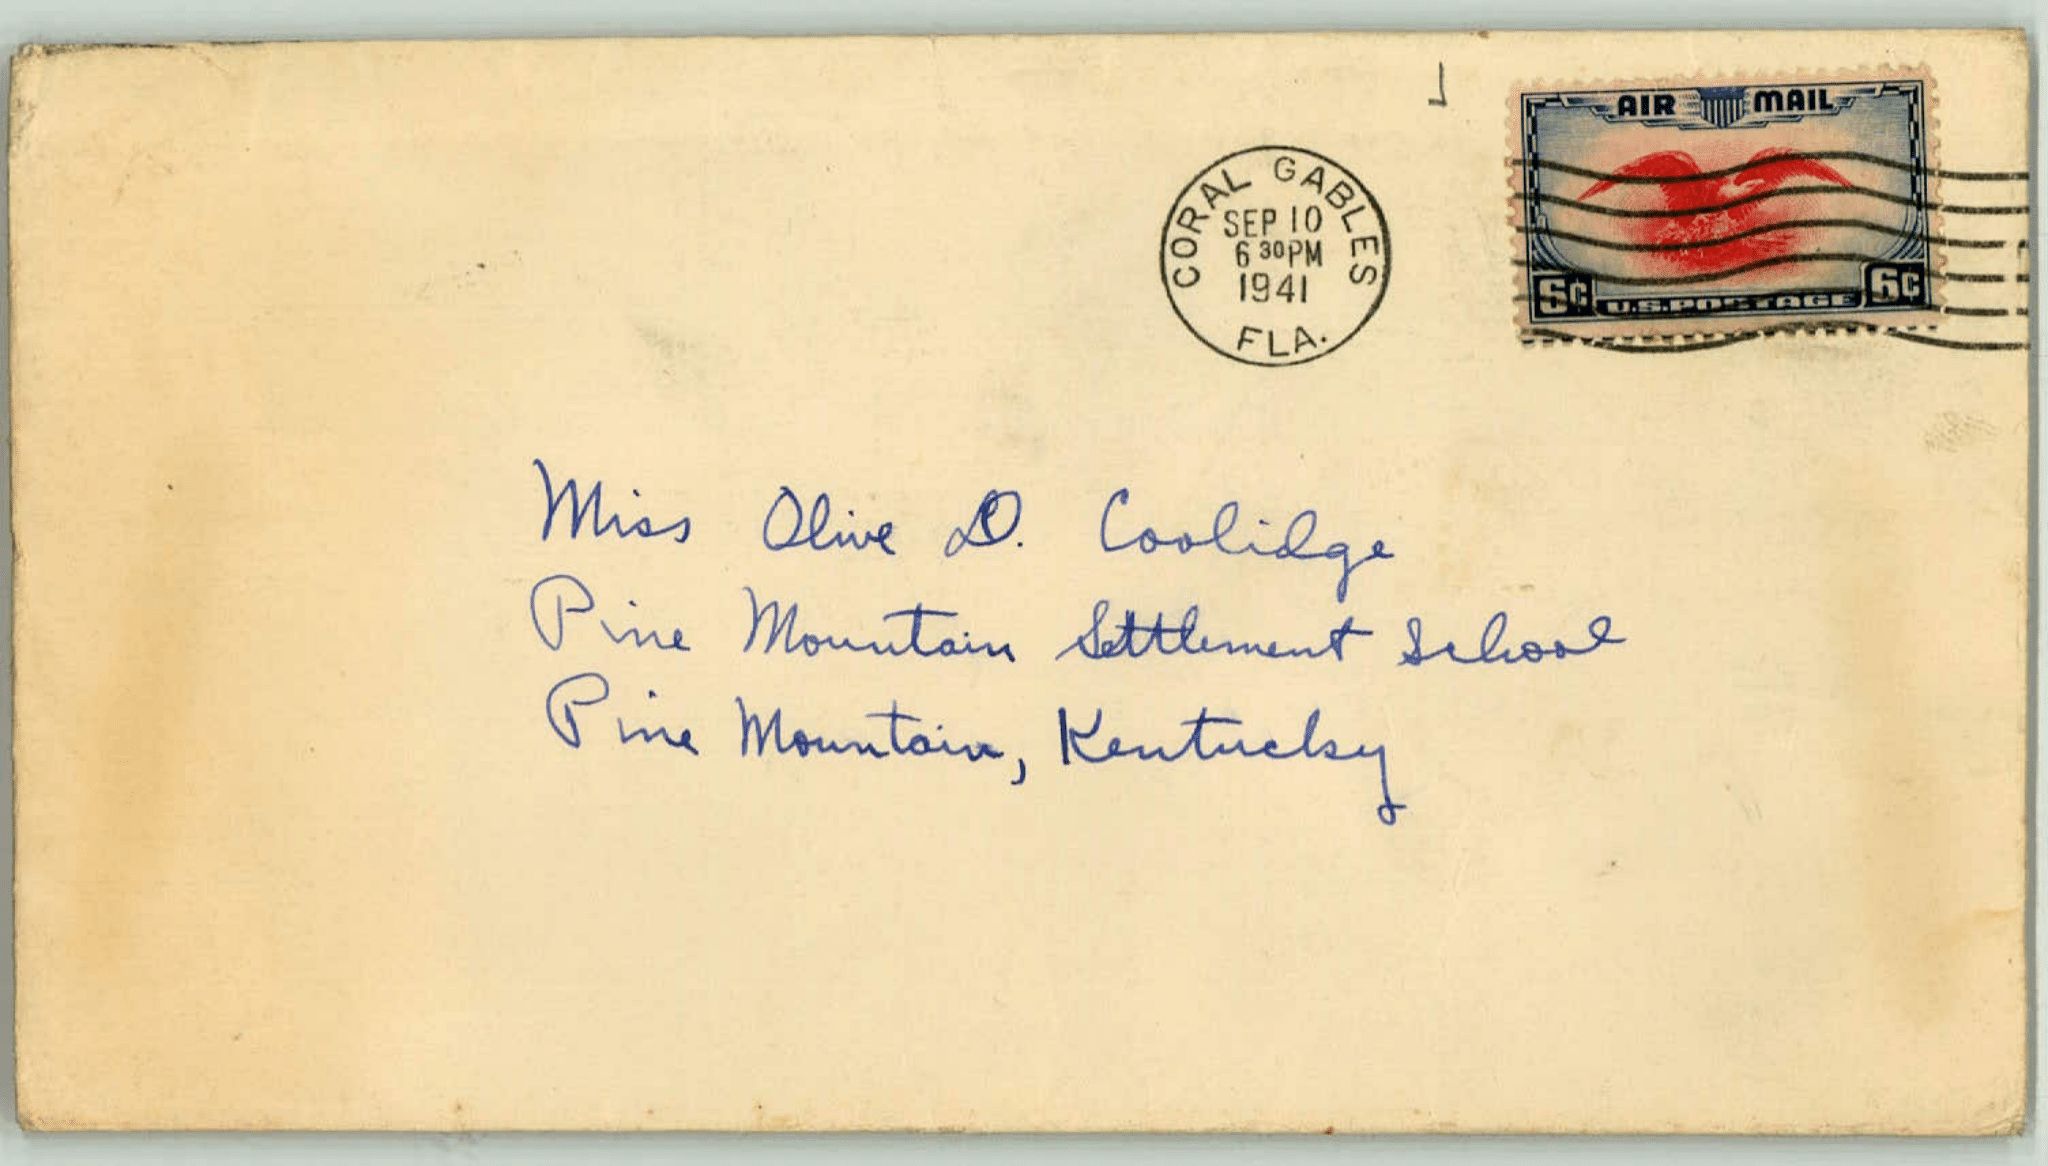 AIR MAIL
CORAL GABLES
SEP 10
6 30 PM
1941
FLA.
6¢ U.S. POSTAGE 6¢
Miss Olive D. Coolidge
Pine Mountain Settlement School
Pine Mountain, Kentucky